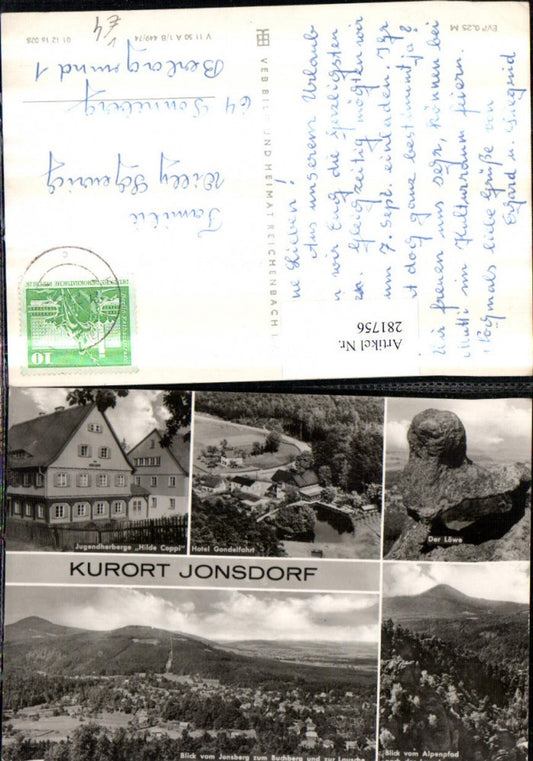 Meine Lieben!
Aus unserem Urlaub
wir Euch die herzlichsten
Gleichzeitig möchten wir
zum 7. Sept. einladen. Ihr
doch ganz bestimmt ja?
Wir freuen uns sehr, können bei
Mutti im Kulturraum feiern.
Nochmals liebe Grüße von
u. Siegrid
Familie
Willy
64 Sonneberg
1
£4
VEB BILD UND HEIMAT REICHENBACH I.
V 11 50 A 1/B 449/74
01 12 16 028
EVP 0,25 M
DEUTSCHE DEMOKRATISCHE REPUBLIK
10
Artikel Nr.
281756
Jugendherberge „Hilde Coppi"
Hotel Gondelfahrt
Der Löwe
KURORT JONSDORF
Blick vom Jonsberg zum Buchberg und zur Lausche
Blick vom Alpenpfad